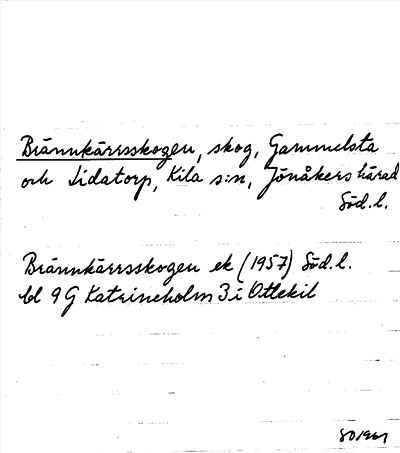 Brännkärrsskogen, skog, Gammelsta
och Lidatorp, Kila s:n, Jönåkers härad
Söd.l.
Brännkärrsskogen ek (1957) Söd.l.
bl 9G Katrineholm 3i Ottekil
SO1961